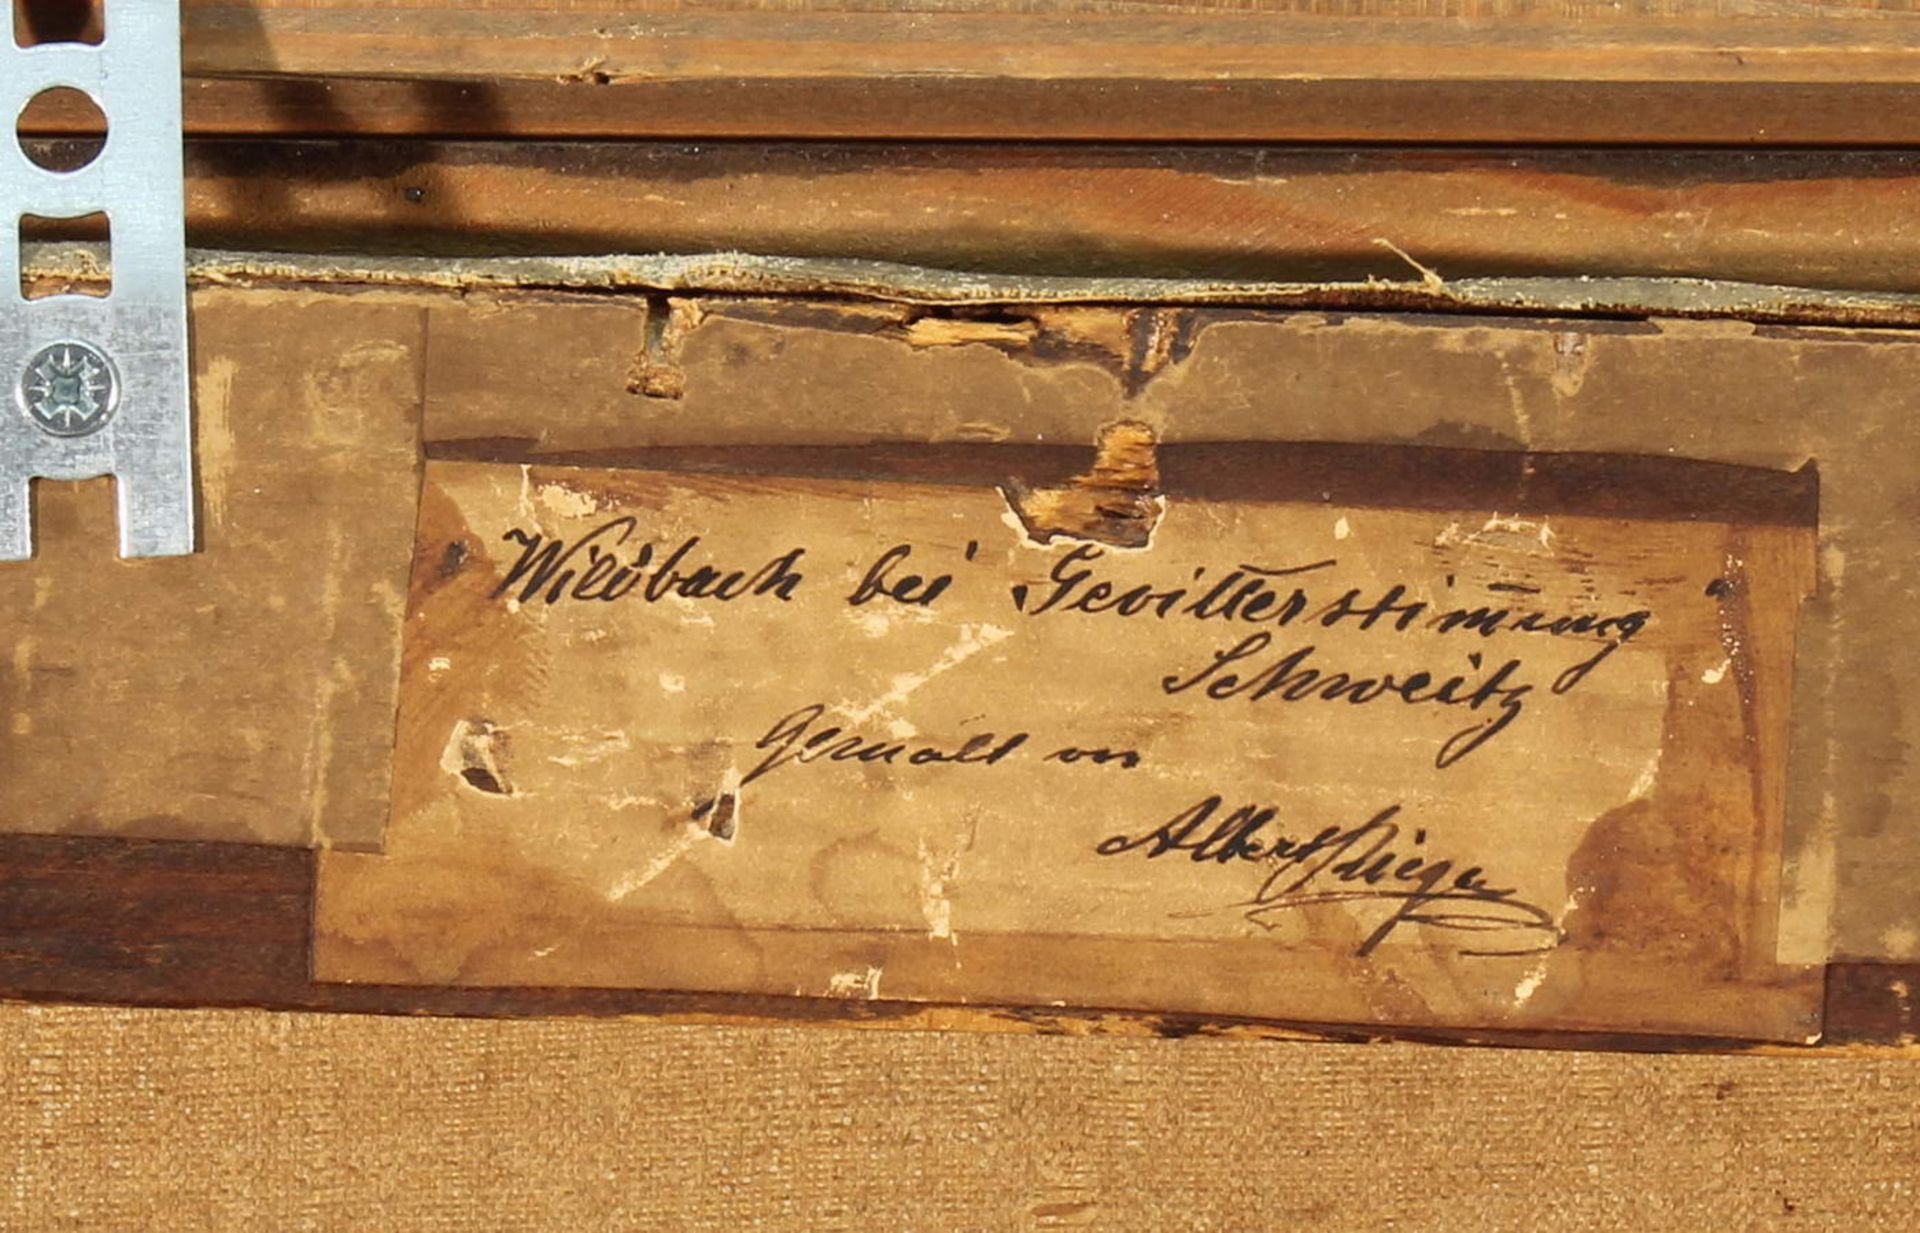 Wildbach bei "Gevitterstimmung"
Schweitz
Gemalt von
Albert Rieger